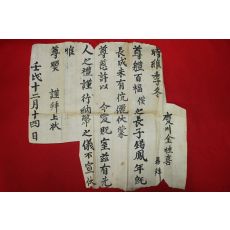 慶州金性喜 再拜
時維季冬
尊體百福 僕之長子錫鳳年旣
長成未有伉儷伏蒙
尊慈許以 令愛貺室茲有先
人之禮謹行納幣之儀不宣伏
惟
尊照 謹拜上狀
壬戌十二月十四日